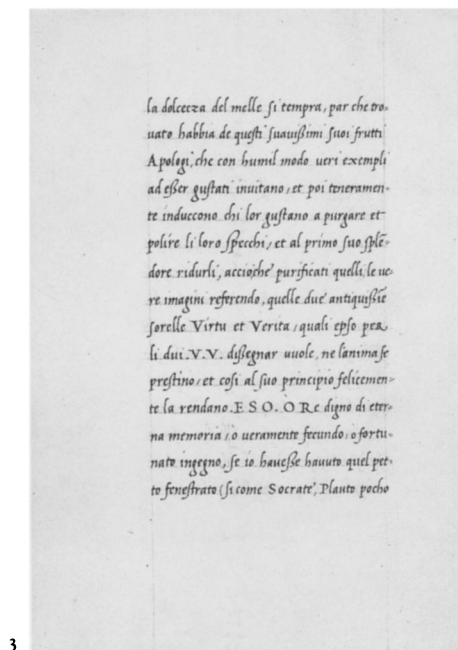 la dolcezza del melle si tempra, par che tro-
uato habbia de questi suauissimi suoi frutti
Apologi, che con humil modo ueri exempli
ad esser gustati inuitano, et poi teneramen-
te induccono chi lor gustano a purgare et
polire li loro specchi, et al primo suo splē-
dore ridurli, accioche' purificati quelli, le ue-
re imagini referendo, quelle due' antiquissīe
sorelle Virtu et Verita, quali epso per
li dui .V.V. dissegnar uuole, ne l'anima se
prestino, et cosi al suo principio felicemen-
te la rendano. ESO. O Re digno di eter-
na memoria, ò ueramente fecundo, o fortu-
nato ingegno, se io hauesse hauuto quel pet-
to fenestrato (si come Socrate', Plauto pocho
3